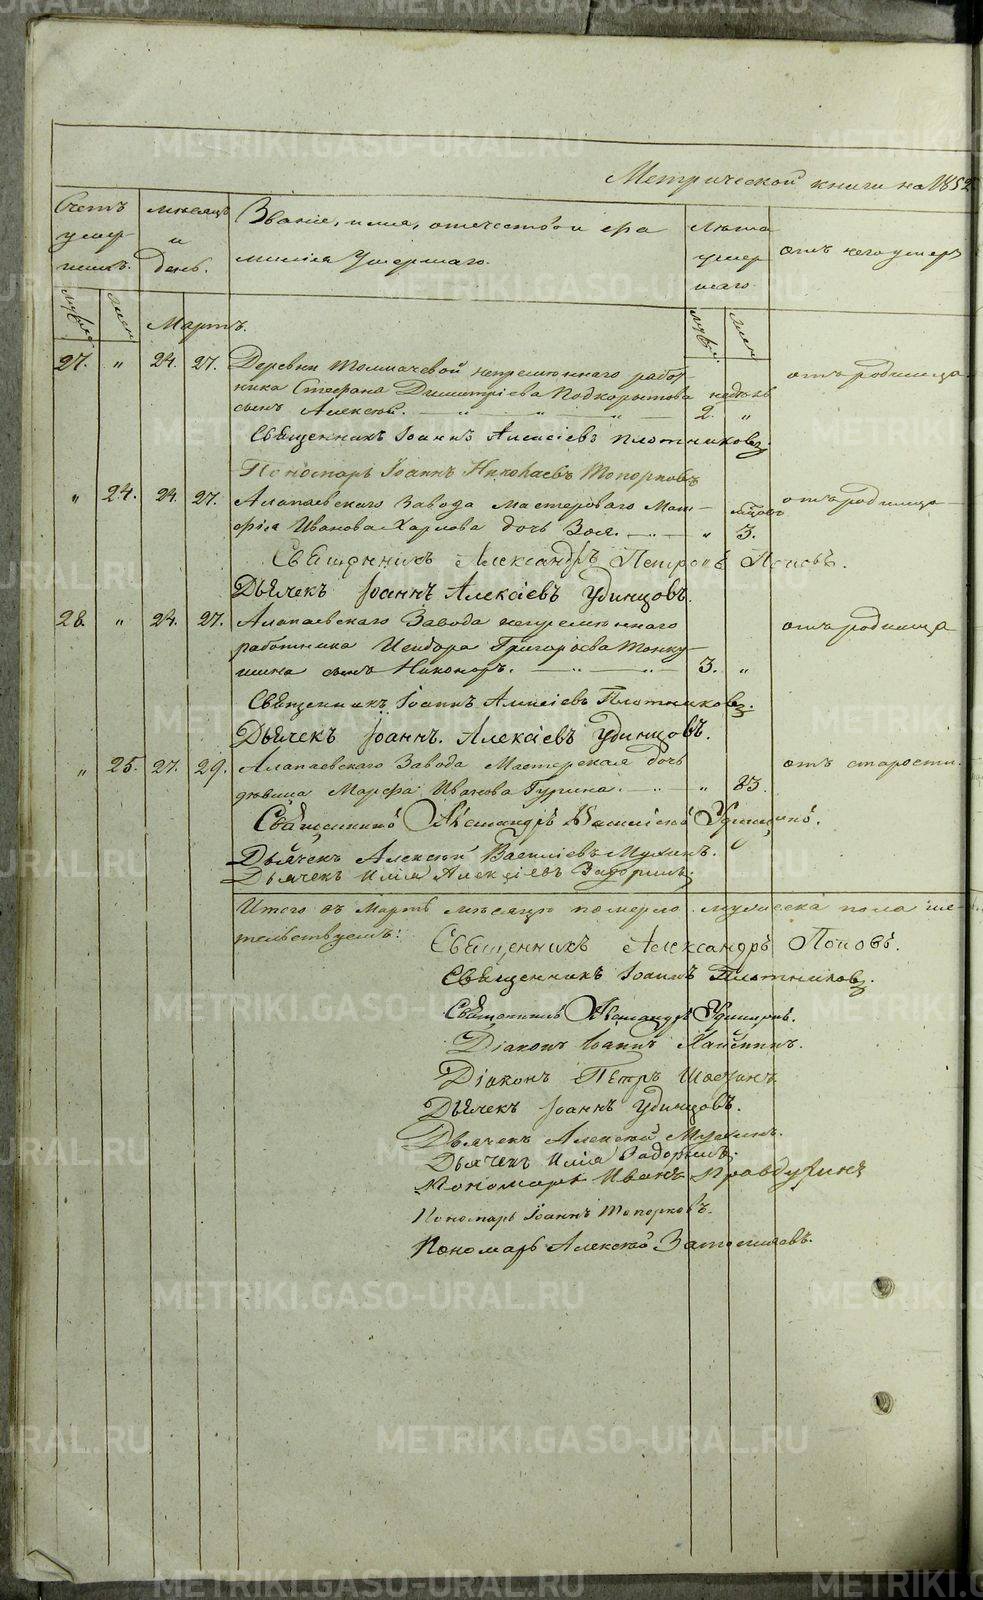 Метрической книги на 1852
Счетъ умер шихъ.
мѣсяцъ и день.
Званіе, имя, отечество и фа
милія Умершаго.
Лѣта умер шаго
отъ чего умеръ
муж. жен. муж. жен.
Мартъ.
27. „ 24. 27. Деревни Толмачевой непремѣннаго работ
ника Стефана Димитріева Подкорытова недѣль отъ родимца
сынъ Алексѣй. — „ — „ — „ 2. „
Священникъ Іоаннъ Алексіевъ Плотниковъ.
Пономарь Іоаннъ Николаевъ Топорковъ
„ 24. 24. 27. Алапаевскаго Завода Мастероваго Мат-
фія Иванова Харлова дочь Зоя. — „ — „ 3. отъ родимца
Священникъ Александръ Петровъ Поповъ.
Дьячекъ Іоаннъ Алексіевъ Удинцовъ.
28. „ 24. 27. Алапаевскаго Завода непремѣннаго отъ родимца
работника Исидора Григорьева Тонку
шина сынъ Никоноръ. — „ — „ 3. „
Священникъ Іоаннъ Алексіевъ Плотниковъ.
Дьячекъ Іоаннъ. Алексіевъ Удинцовъ.
„ 25. 27. 29. Алапаевскаго Завода Мастерская дочь отъ старости.
дѣвица Марфа Иванова Гурина. — „ — „ 83.
Священникъ Александръ Удинцовъ.
Дьячекъ Алексѣй Василіевъ Мухинъ.
Дьячекъ Илія Алексіевъ Задоринъ.
Итого въ Мартѣ мѣсяцѣ померло мужеска пола
тельствуемъ:
Священникъ Александръ Поповъ.
Священникъ Іоаннъ Плотниковъ.
Священникъ Александръ Удинцовъ.
Діаконъ Іоаннъ
Діаконъ Петръ
Дьячекъ Іоаннъ Удинцовъ.
Дьячекъ Алексѣй Мухинъ.
Дьячекъ Илія Задоринъ.
Пономарь Иванъ Правдухинъ
Пономарь Іоаннъ Топорковъ.
Пономарь Алексѣй
METRIKI.GASO-URAL.RU